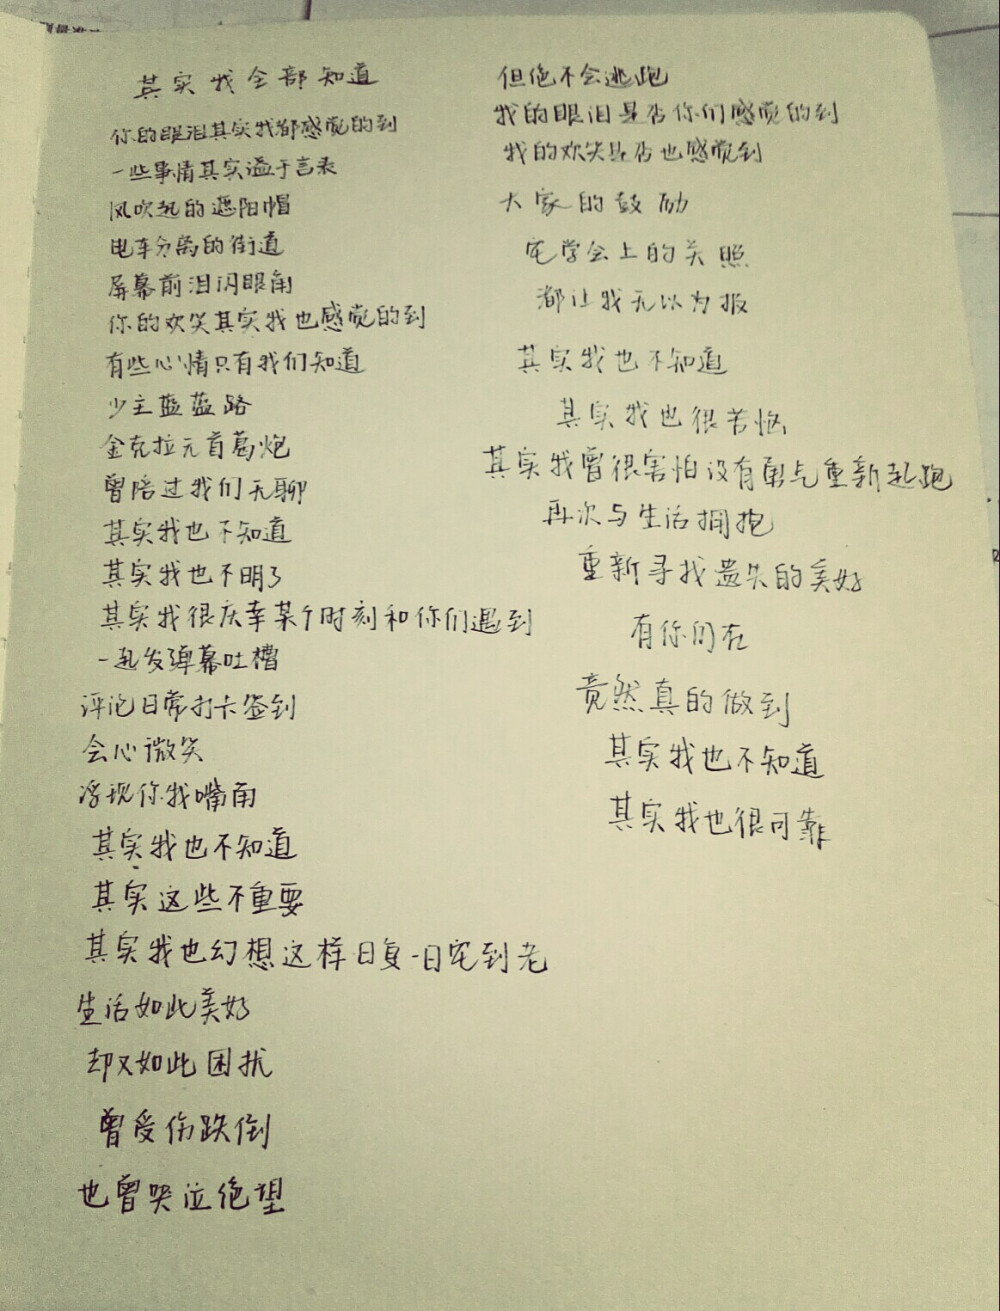 其实我全部知道
你的眼泪其实我都感觉的到
一些事情其实溢于言表
风吹起的遮阳帽
电车分离的街道
屏幕前泪闪眼角
你的欢笑其实我也感觉的到
有些心情只有我们知道
少主蓝蓝路
金克拉元首葛炮
曾陪过我们无聊
其实我也不知道
其实我也不明了
其实我很庆幸某个时刻和你们遇到
一起发弹幕吐槽
评论日常打卡签到
会心微笑
浮现你我嘴角
其实我也不知道
其实这些不重要
其实我也幻想这样日复一日宅到老
生活如此美好
却又如此困扰
曾受伤跌倒
也曾哭泣绝望
但绝不会逃跑
我的眼泪是否你们感觉的到
我的欢笑是否也感觉到
大家的鼓励
宅学会上的关照
都让我无以为报
其实我也不知道
其实我也很苦恼
其实我曾很害怕没有勇气重新起跑
再次与生活拥抱
重新寻找遗失的美好
有你们在
竟然真的做到
其实我也不知道
其实我也很可靠